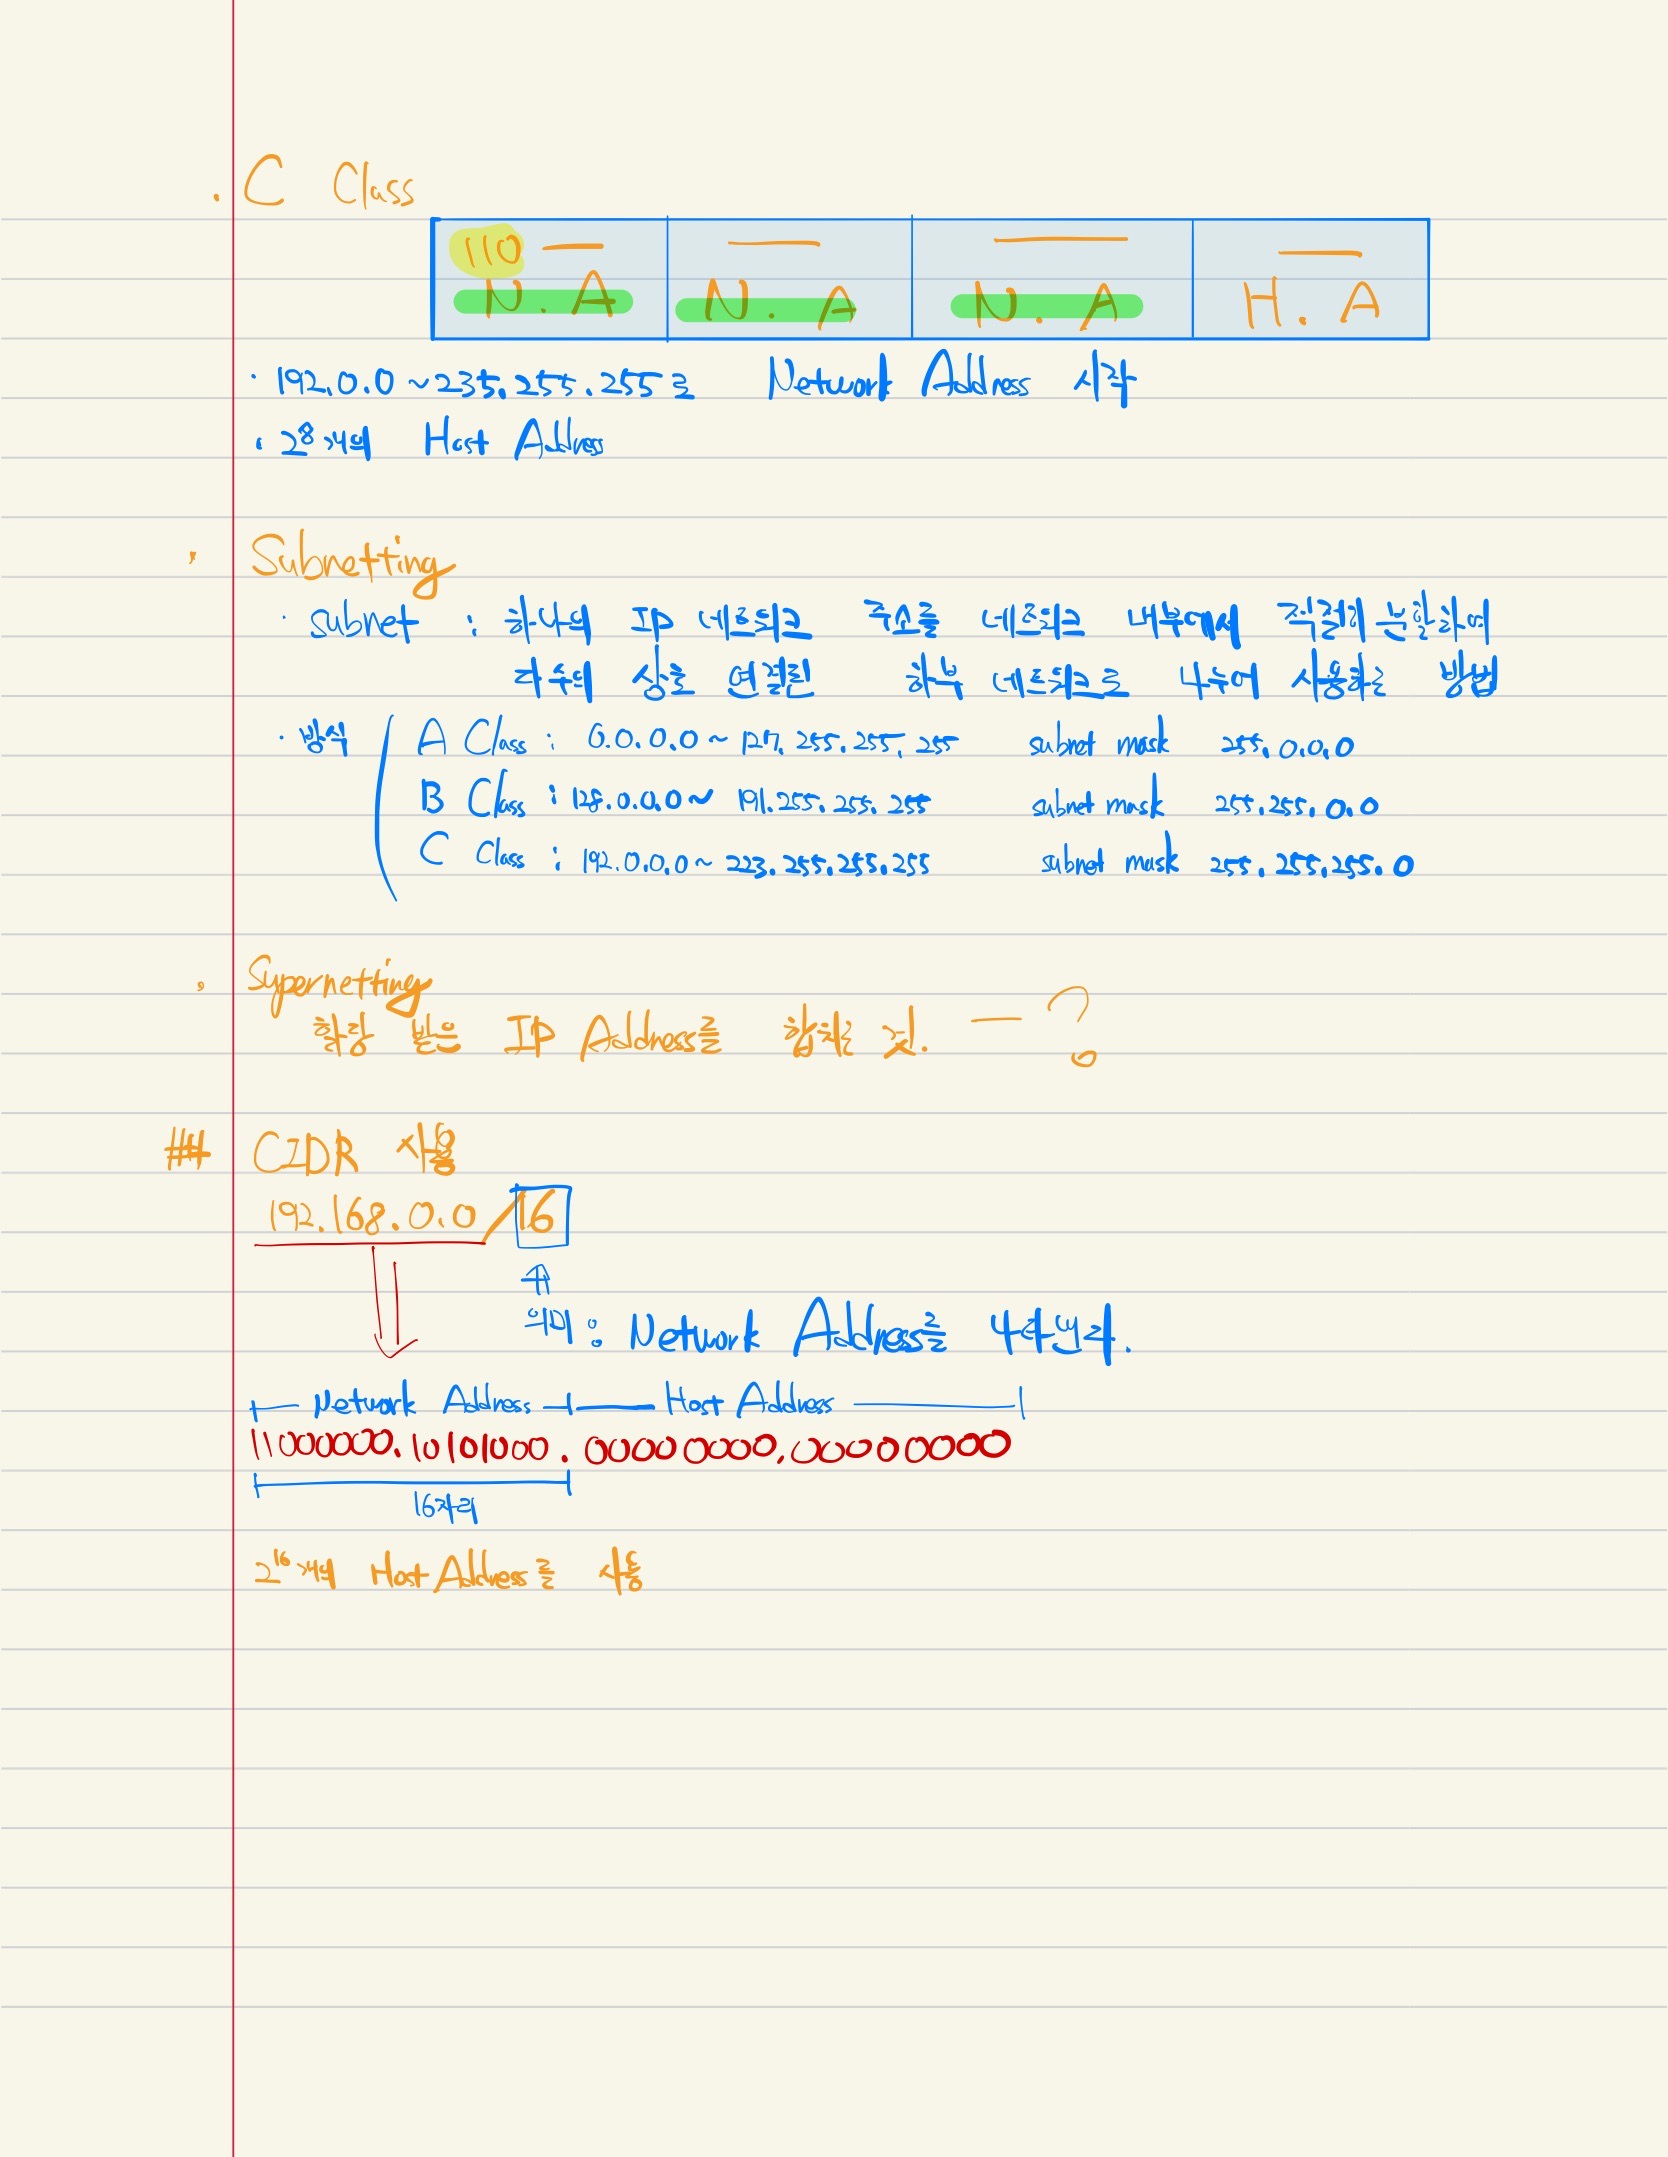 . C Class
110 — — — —
N. A N. A N. A H. A
· 192.0.0 ~ 235.255.255로 Network Address 시작
· 2⁸개의 Host Address
· Subnetting
· subnet : 하나의 IP 네트워크 주소를 네트워크 내부에서 적절히 분할하여
다수의 상호 연결된 하부 네트워크로 나누어 사용하는 방법
· 방식 ( A Class : 0.0.0.0 ~ 127.255.255.255 subnet mask 255.0.0.0
B Class : 128.0.0.0 ~ 191.255.255.255 subnet mask 255.255.0.0
C Class : 192.0.0.0 ~ 223.255.255.255 subnet mask 255.255.255.0
· Supernetting
할당 받은 IP Address를 합치는 것. — ?
## CIDR 사용
192.168.0.0/16
의미 : Network Address를 나타낸다.
Network Address Host Address
11000000.10101000.00000000.00000000
16자리
2¹⁶개의 Host Address를 사용